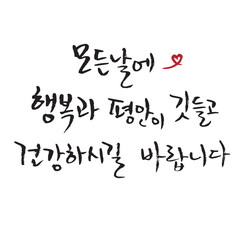 모든날에
행복과 평안이 깃들고
건강하시길 바랍니다